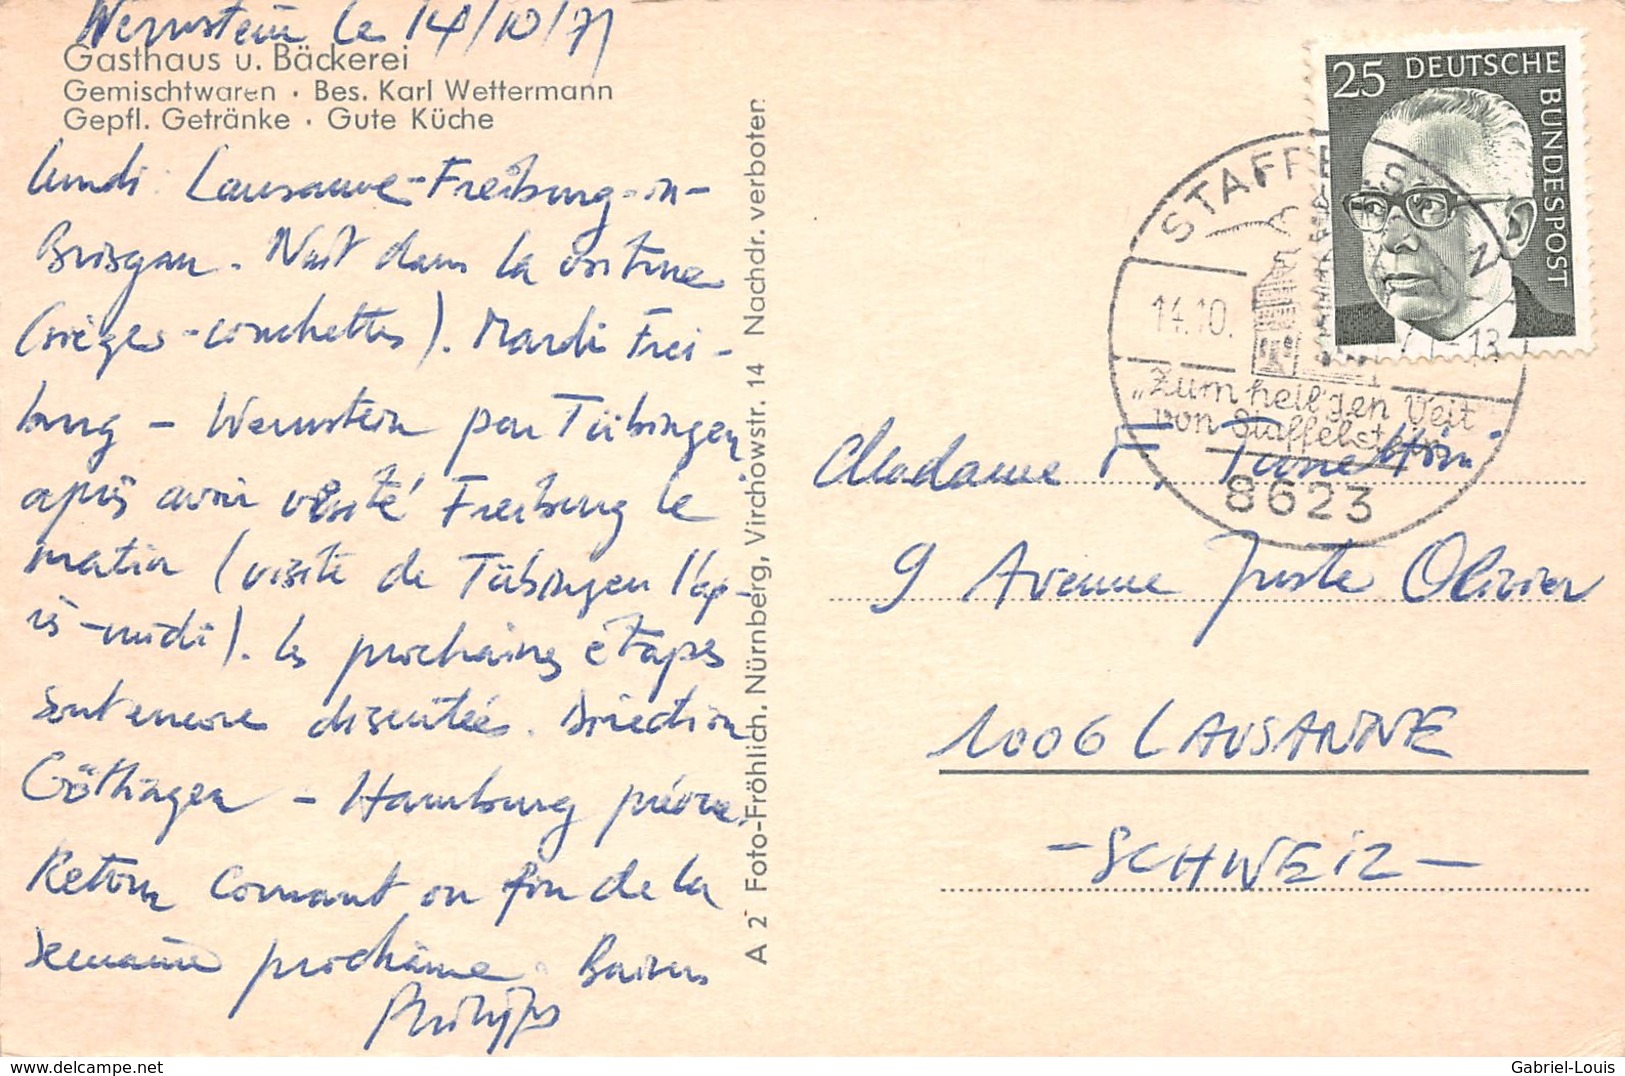 Wernstein le 14/10/71
Gasthaus u. Bäckerei
Gemischtwaren · Bes. Karl Wettermann
Gepfl. Getränke · Gute Küche
lundi: Lausanne-Freiburg-in-
Brisgau. Nuit dans la voiture
(sièges-couchettes). Mardi Frei-
burg - Wernstein par Tübingen
après avoir visité Freiburg le
matin (visite de Tübingen l'ap-
rès-midi). Les prochaines étapes
sont encore discutées. Direction
Göttingen - Hamburg prévue.
Retour courant ou fin de la
semaine prochaine. Baisers
Philippe
A 2 Foto-Fröhlich, Nürnberg, Virchowstr. 14 Nachdr. verboten
25 DEUTSCHE BUNDESPOST
STAFFELSTEIN
14.10.71-13
"Zum heil'gen Veit
von Staffelstein"
8623
Madame F.
9 Avenue Juste Olivier
1006 LAUSANNE
- SCHWEIZ -
Gabriel-Louis